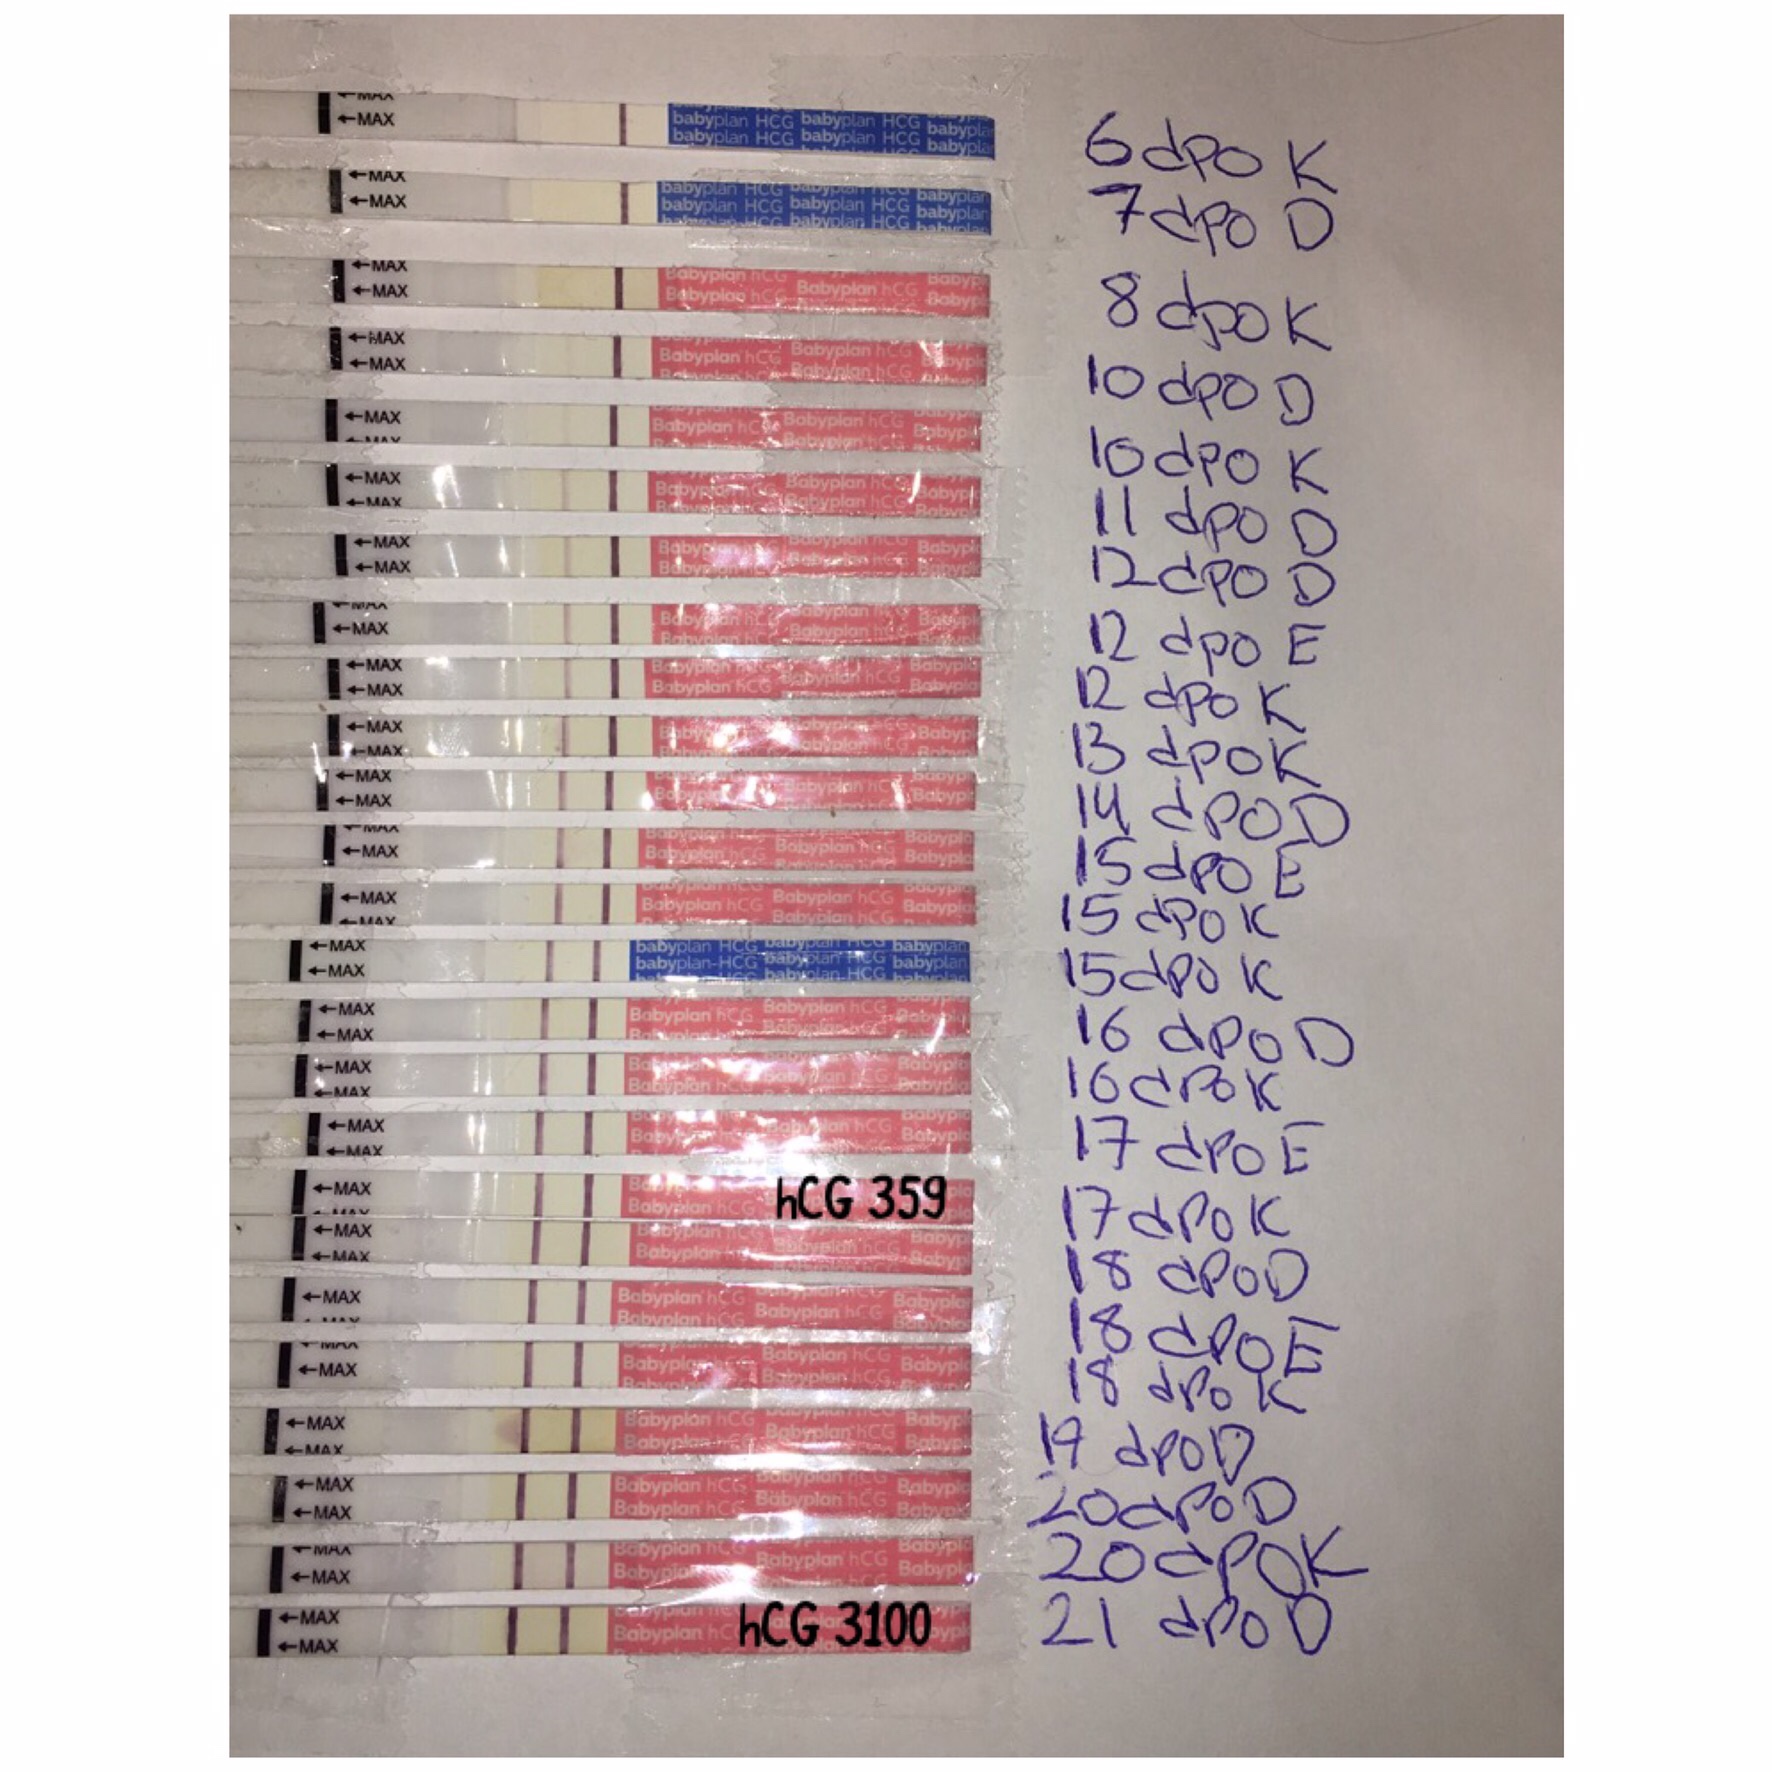 ←MAX
←MAX babyplan HCG babyplan HCG babypla
babyplan HCG babyplan HCG babypla
6 dpo K
←MAX babyplan HCG babyplan HCG babyplan
←MAX babyplan HCG babyplan HCG babyplan
7 dpo D
←MAX Babyplan hCG Babyp
←MAX Babyplan hCG Babyplan hCG Babyp
8 dpo K
←MAX
←MAX Babyplan hCG Babyplan hCG
10 dpo D
←MAX Babyplan hC Babyplan hCG
←MAX
10 dpo K
←MAX Babyplan hCG
←MAX Babyplan hCG Babyp
11 dpo D
←MAX Babyplan hCG
←MAX Babypl
12 dpo D
←MAX
←MAX Babyplan hCG Babyplan hCG
12 dpo E
←MAX
←MAX Babyplan hCG Babyplan hCG Babypla
12 dpo K
←MAX
←MAX Babyplan hCG
13 dpo K
←MAX
←MAX Babyplan hCG Babypl
14 dpo D
←MAX
←MAX Babyplan hCG Babyplan hCG Babypla
15 dpo E
←MAX Babyplan hCG Babyplan hCG Babypla
←MAX
15 dpo K
←MAX babyplan HCG babyplan HCG babyplan
←MAX babyplan-HCG babyplan-HCG babyplan
15 dpo K
←MAX Babyplan hCG Babyplan hCG
←MAX
16 dpo D
←MAX Babyplan hCG
←MAX Babyplan hCG Babyplan hCG
16 dpo K
←MAX Babyplan hCG
←MAX
17 dpo E
←MAX hCG 359
←MAX
17 dpo K
←MAX
←MAX Babyplan hCG
18 dpo D
←MAX Babyplan hCG Babyplan hCG Babyplan
←MAX Babyplan hCG
18 dpo E
←MAX Babyplan hCG
←MAX Babyplan Babypla
18 dpo K
←MAX Babyplan hCG Babyplan hCG Babypl
←MAX Babyplan hCG
19 dpo D
←MAX Babyplan hCG Babyplan hCG
←MAX Babyplan hCG Babyplan hCG
20 dpo D
←MAX Babyplan hCG Babyplan hCG
←MAX Babyplan
20 dpo K
←MAX hCG 3100
←MAX Babyplan hC
21 dpo D